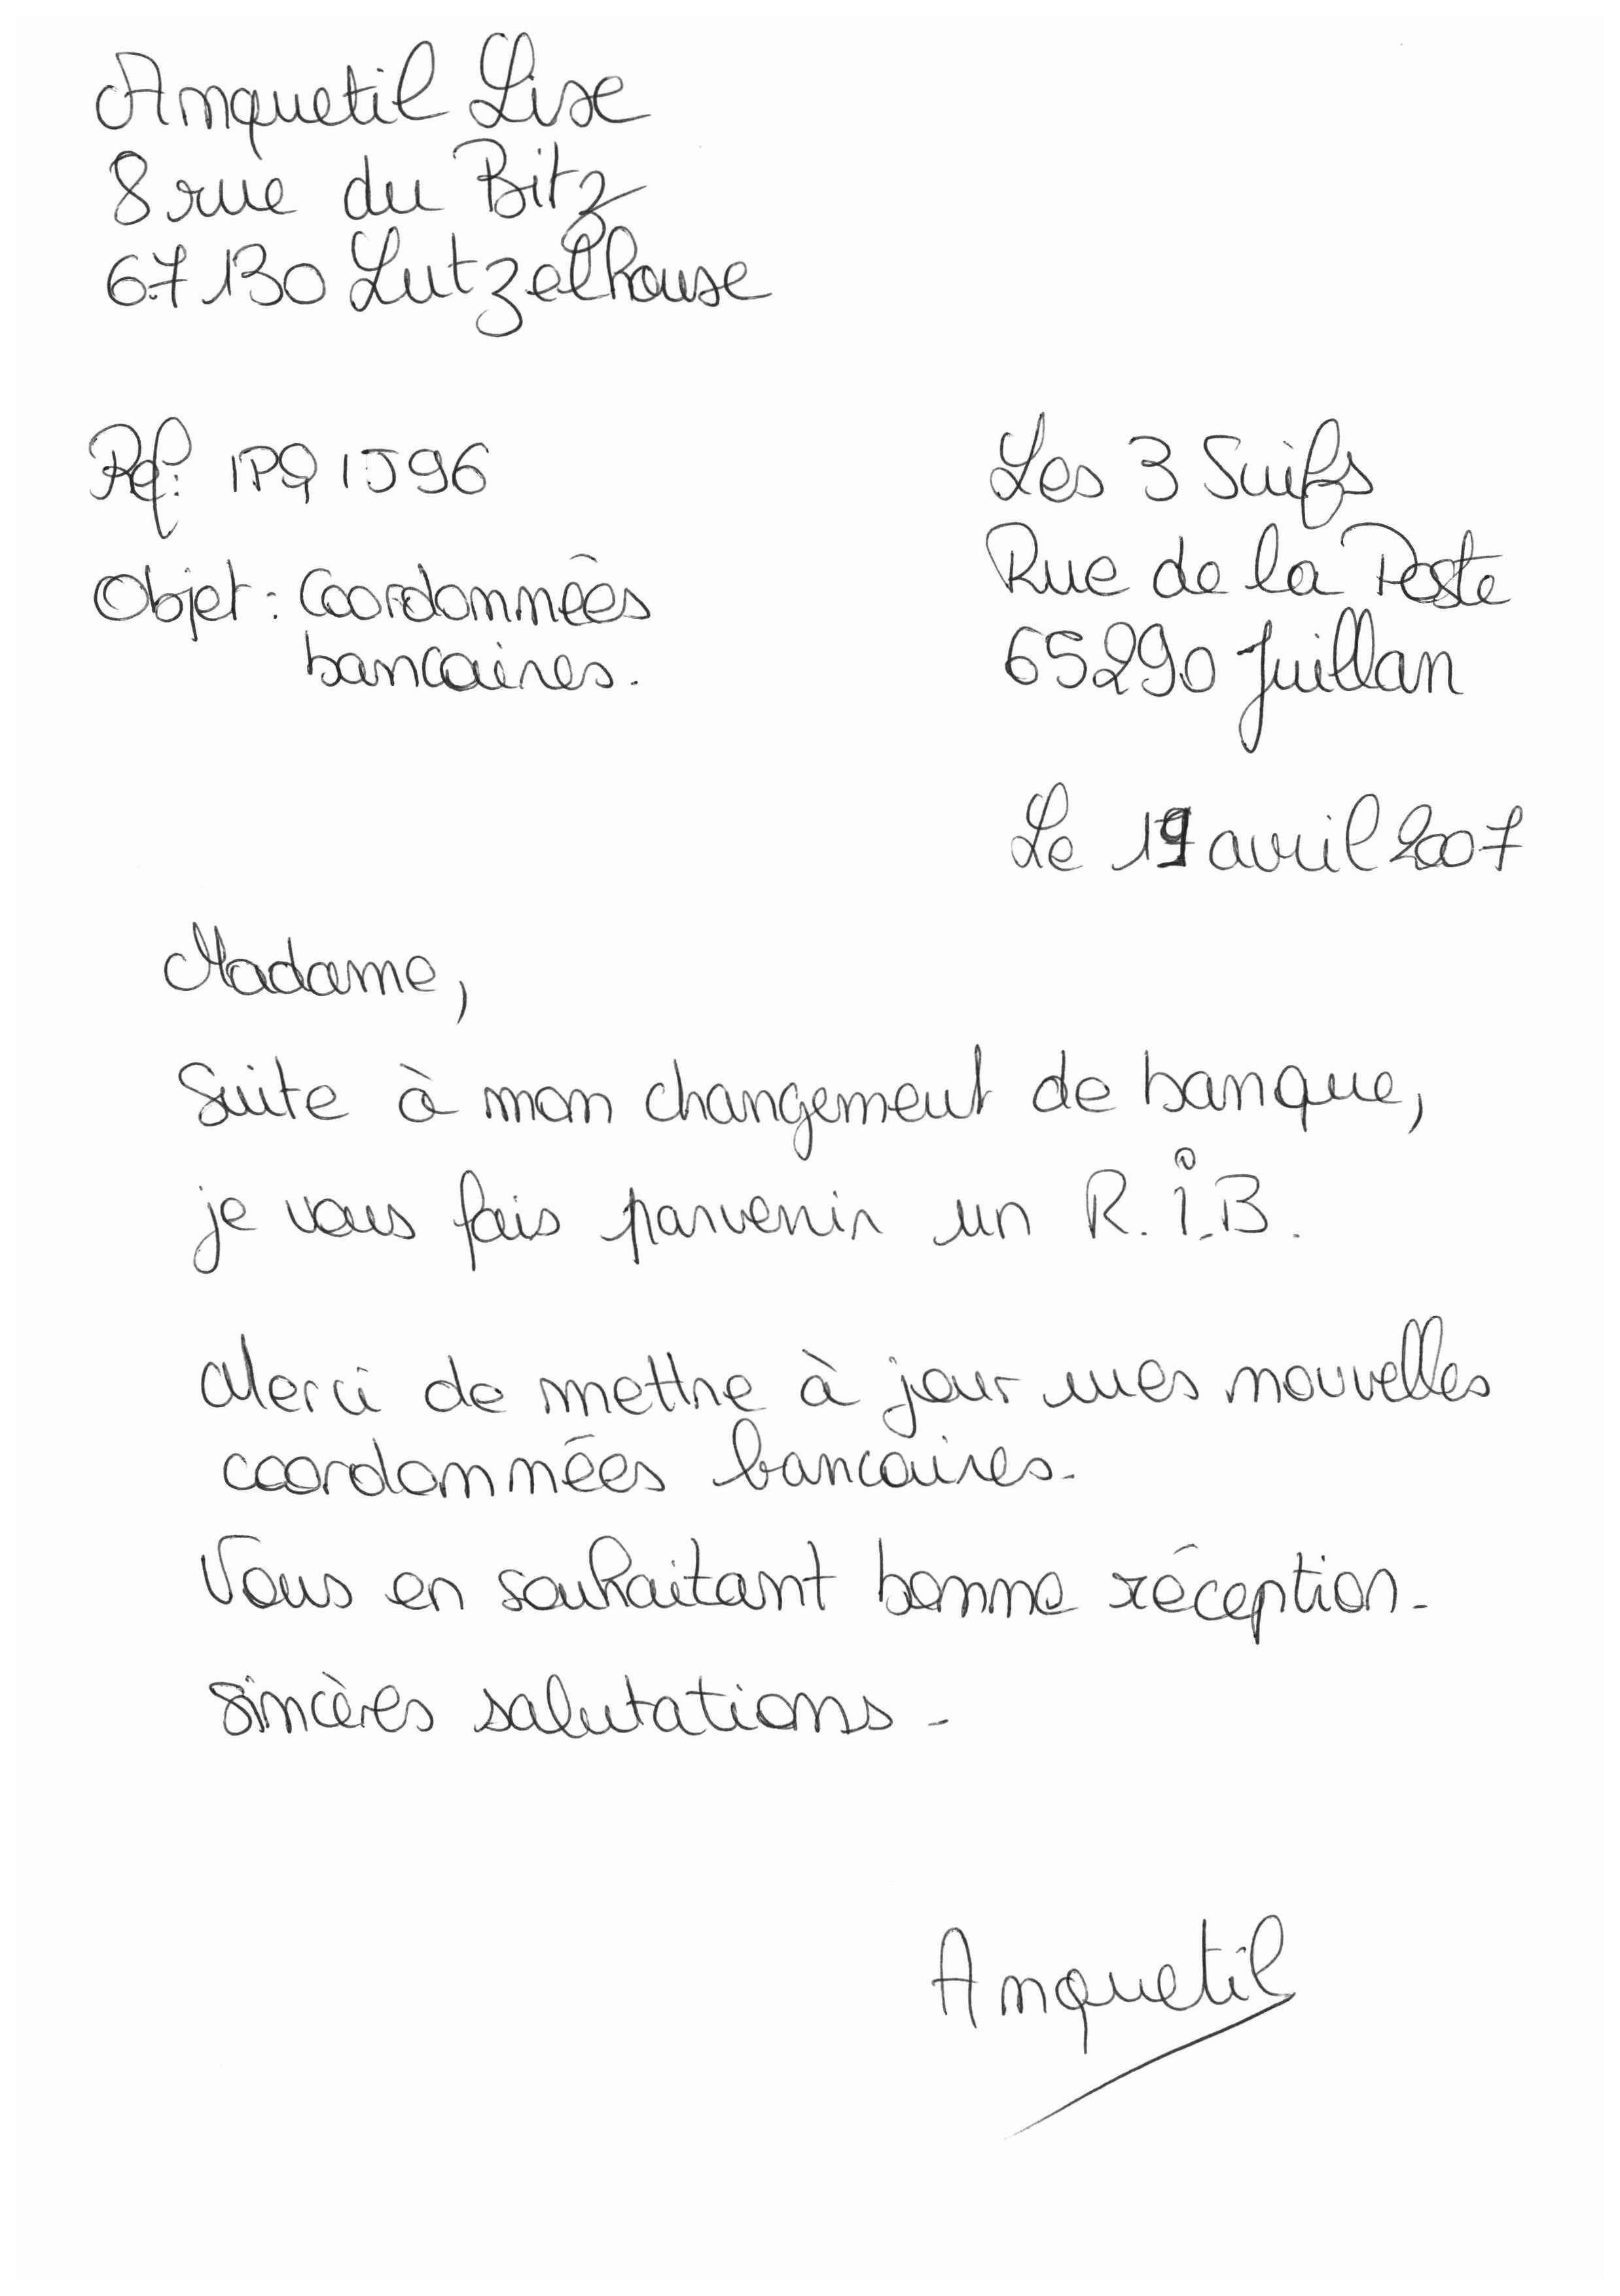 Anquetil Lise
8 rue du Bitz
67130 Lutzelhouse
Réf: IPQ1J96
Objet: Coordonnées
bancaires.
Les 3 Suifs
Rue de la Poste
65290 Juillan
Le 19 avril 2007
Madame,
Suite à mon changement de banque,
je vous fais parvenir un R.I.B.
Merci de mettre à jour mes nouvelles
coordonnées bancaires.
Vous en souhaitant bonne réception.
Sincères salutations.
Anquetil